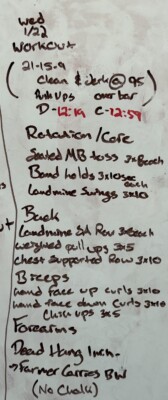 Wed
1/22
Workout
21-15-9
Clean & Jerk @ 95
Pull ups over bar
D-12:19 C-12:59
Rotation/Core
Seated MB toss 3x8each
Band holds 3x10sec
each
Landmine Swings 3x10
Back
Landmine SA Row 3x8each
weighted pull ups 3x5
Chest Supported Row 3x10
Biceps
hand face up curls 3x10
hand face down curls 3x10
Chin ups 3x5
Forearms
Dead Hang 1min.
→Farmer Carries BW
(No Chalk)